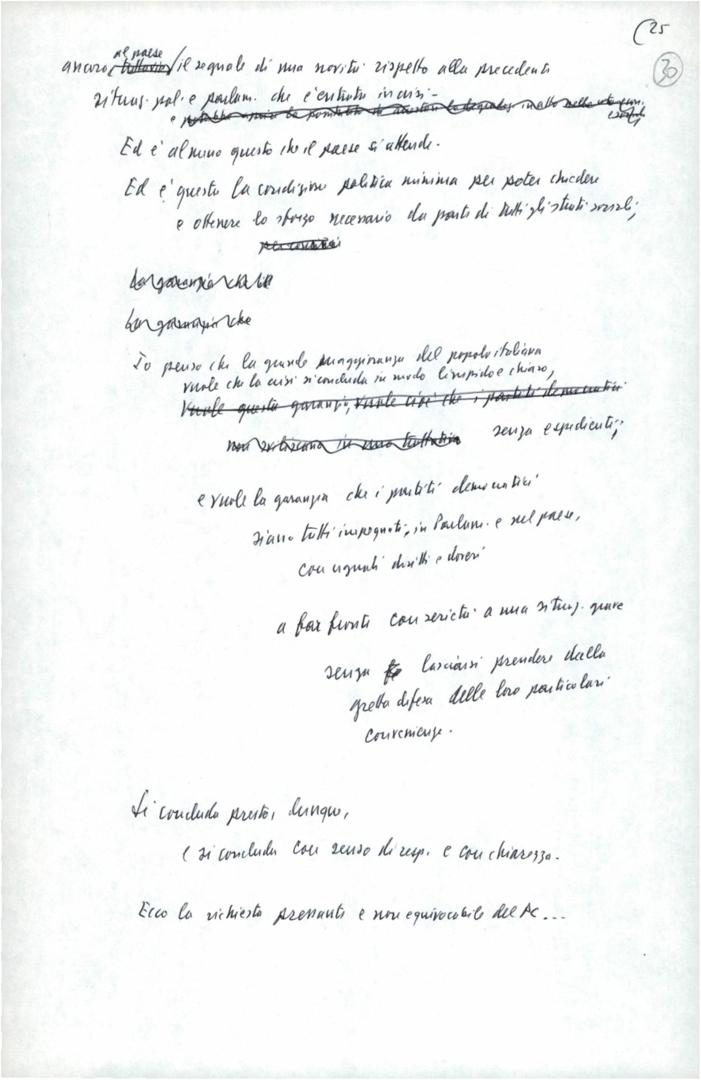 25
30
al paese
ancora, tuttavia, il segnale di una novità rispetto alla precedente
situaz. pol. e parlam. che è entrata in crisi -
Ed è almeno questo che il paese si attende.
Ed è questa la condizione politica minima per poter chiedere
e ottenere lo sforzo necessario da parte di tutti gli strati sociali;
La garanzia che
La garanzia che
Io penso che la grande maggioranza del popolo italiano
vuole che la crisi si concluda in modo limpido e chiaro,
Vuole questa garanzia, vuole cioè che i partiti democratici
non in una senza espedienti;
e vuole la garanzia che i partiti democratici
siano tutti impegnati, in Parlam. e nel paese,
con uguali diritti e doveri
a far fronte con serietà a una situaz. grave
senza lasciarsi prendere dalla
gretta difesa delle loro particolari
convenienze.
Si concluda presto, dunque,
e si concluda con senso di resp. e con chiarezza.
Ecco la richiesta pressante e non equivocabile del PC...